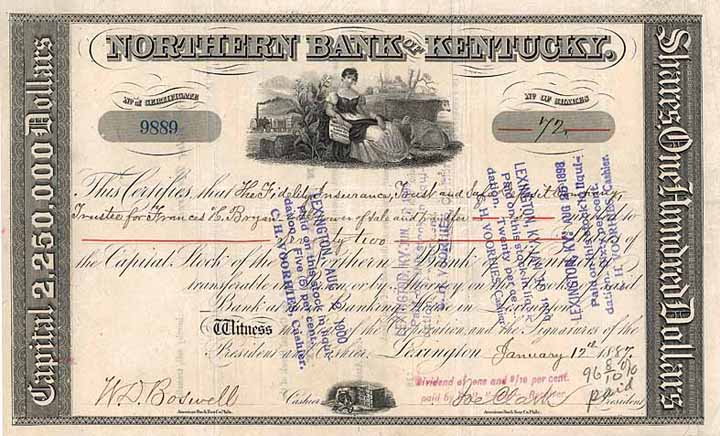 NORTHERN BANK OF KENTUCKY.
No. of CERTIFICATE
9889
No. OF SHARES
72
Capital 2,250,000 Dollars
Shares, One Hundred Dollars
This Certifies that The Fidelity Insurance, Trust and Safe Deposit Company
Trustee for Frances C. Bryan power of sale and transfer to
Seventy two of
the Capital Stock of the Northern Bank of Kentucky
transferable in person or by Attorney on the books of said
Bank at the Banking House in Lexington
Witness the Seal of the Corporation and the Signatures of the
President and Cashier. Lexington January 12th 1887.
W. D. Boswell Cashier
President
American Bank Note Co. Phila.
American Bank Note Co. Phila.
LEXINGTON, AUG 1900
Paid on this stock in liqui-
dation, Five (5) per cent.
C. H. VOORHIES Cashier.
LEXINGTON, KY.
Paid on this stock in liqui-
dation, Twenty per cent.
H. VOORHIES, Cashier.
LEXINGTON, KY. AUG 1898
Paid on this stock in liqui-
dation, per cent.
H. VOORHIES, Cashier.
Dividend of one and 6/10 per cent.
paid by
96 8/10 %
paid